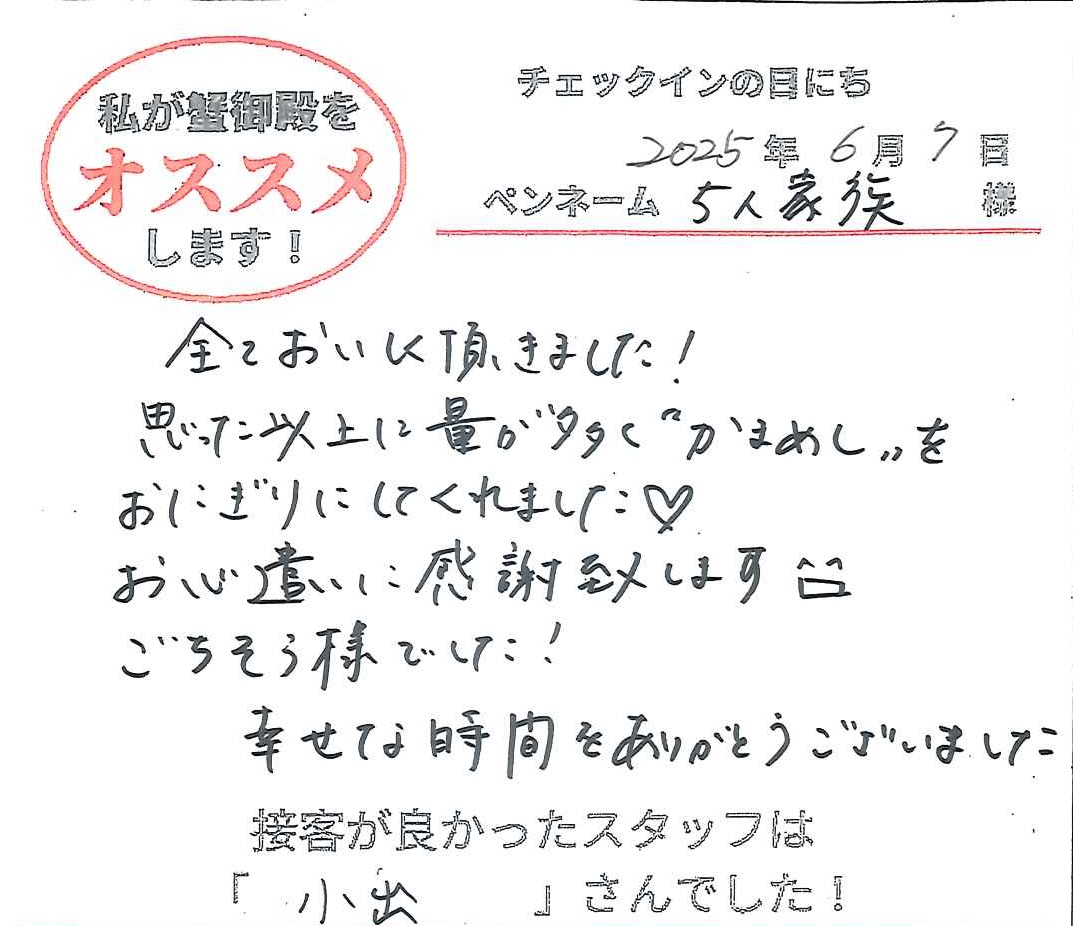 私が蟹御殿を
オススメ
します!
チェックインの日にち
2025年 6月 7日
ペンネーム 5人家族 様
全ておいしく頂きました!
思った以上に量が多く“かまめし„を
おにぎりにしてくれました♡
お心遣いに感謝致します
ごちそう様でした!
幸せな時間をありがとうございました
接客が良かったスタッフは
「 小出 」さんでした!